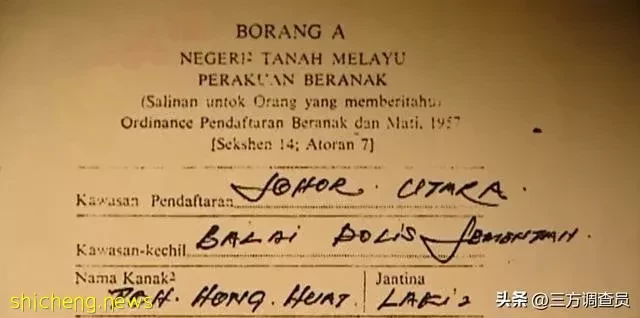 BORANG A
NEGERI² TANAH MELAYU
PERAKUAN BERANAK
(Salinan untok Orang yang memberitahu)
Ordinance Pendaftaran Beranak dan Mati, 1957
[Sekshen 14; Atoran 7]
Kawasan Pendaftaran JOHOR UTARA.
Kawasan-kechil BALAI POLIS JEMENTAH.
Nama Kanak² Jantina
HONG HUAT. LAKI2
shicheng.news
头条 @三方调查员